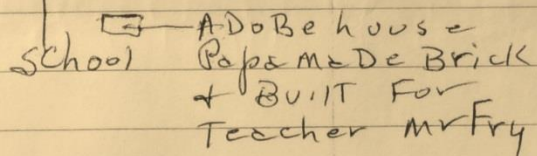 ADoBe house
School Papa MaDe Brick
+ BUilT For
Teacher MrFry